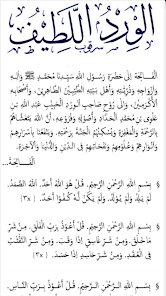 الورد اللطيف
الفَاتِحَةَ إِلَى حَضْرَةِ رَسُولِ اللهِ سَيِّدِنَا مُحَمَّدٍ ﷺ وَآلِهِ
وَأَزْوَاجِهِ وَذُرِّيَّتِهِ وَأَهْلِ بَيْتِهِ الطَّيِّبِيْنَ الطَّاهِرِيْنَ، وَأَصْحَابِهِ
الأَكْرَمِيْنَ، وَإِلَى رُوْحِ صَاحِبِ الْوِرْدِ الْحَبِيْبِ عَبْدِ اللهِ بْنِ
عَلَوِي بْنِ مُحَمَّدٍ الْحَدَّادِ وَأُصُوْلِهِ وَفُرُوْعِهِ، أَنَّ اللهَ يَتَغَشَّاهُمْ
بِالرَّحْمَةِ وَالْمَغْفِرَةِ وَيُسْكِنُهُمُ الْجَنَّةَ بِرَحْمَتِهِ، وَيَنْفَعُنَا بِأَسْرَارِهِمْ
وَأَنْوَارِهِمْ وَعُلُوْمِهِمْ وَنَفَحَاتِهِمْ فِي الدِّيْنِ وَالدُّنْيَا وَالْآخِرَةِ،
الْفَاتِحَةَ...
بِسْمِ اللهِ الرَّحْمَنِ الرَّحِيْمِ. قُلْ هُوَ اللهُ أَحَدٌ. اللهُ الصَّمَدُ.
لَمْ يَلِدْ وَلَمْ يُوْلَدْ. وَلَمْ يَكُنْ لَهُ كُفُوًا أَحَدٌ. [٣x]
بِسْمِ اللهِ الرَّحْمَنِ الرَّحِيْمِ. قُلْ أَعُوْذُ بِرَبِّ الْفَلَقِ. مِنْ شَرِّ
مَا خَلَقَ. وَمِنْ شَرِّ غَاسِقٍ إِذَا وَقَبَ. وَمِنْ شَرِّ النَّفَّاثَاتِ
فِي الْعُقَدِ. وَمِنْ شَرِّ حَاسِدٍ إِذَا حَسَدَ. [٣x]
بِسْمِ اللهِ الرَّحْمَنِ الرَّحِيْمِ. قُلْ أَعُوْذُ بِرَبِّ النَّاسِ.